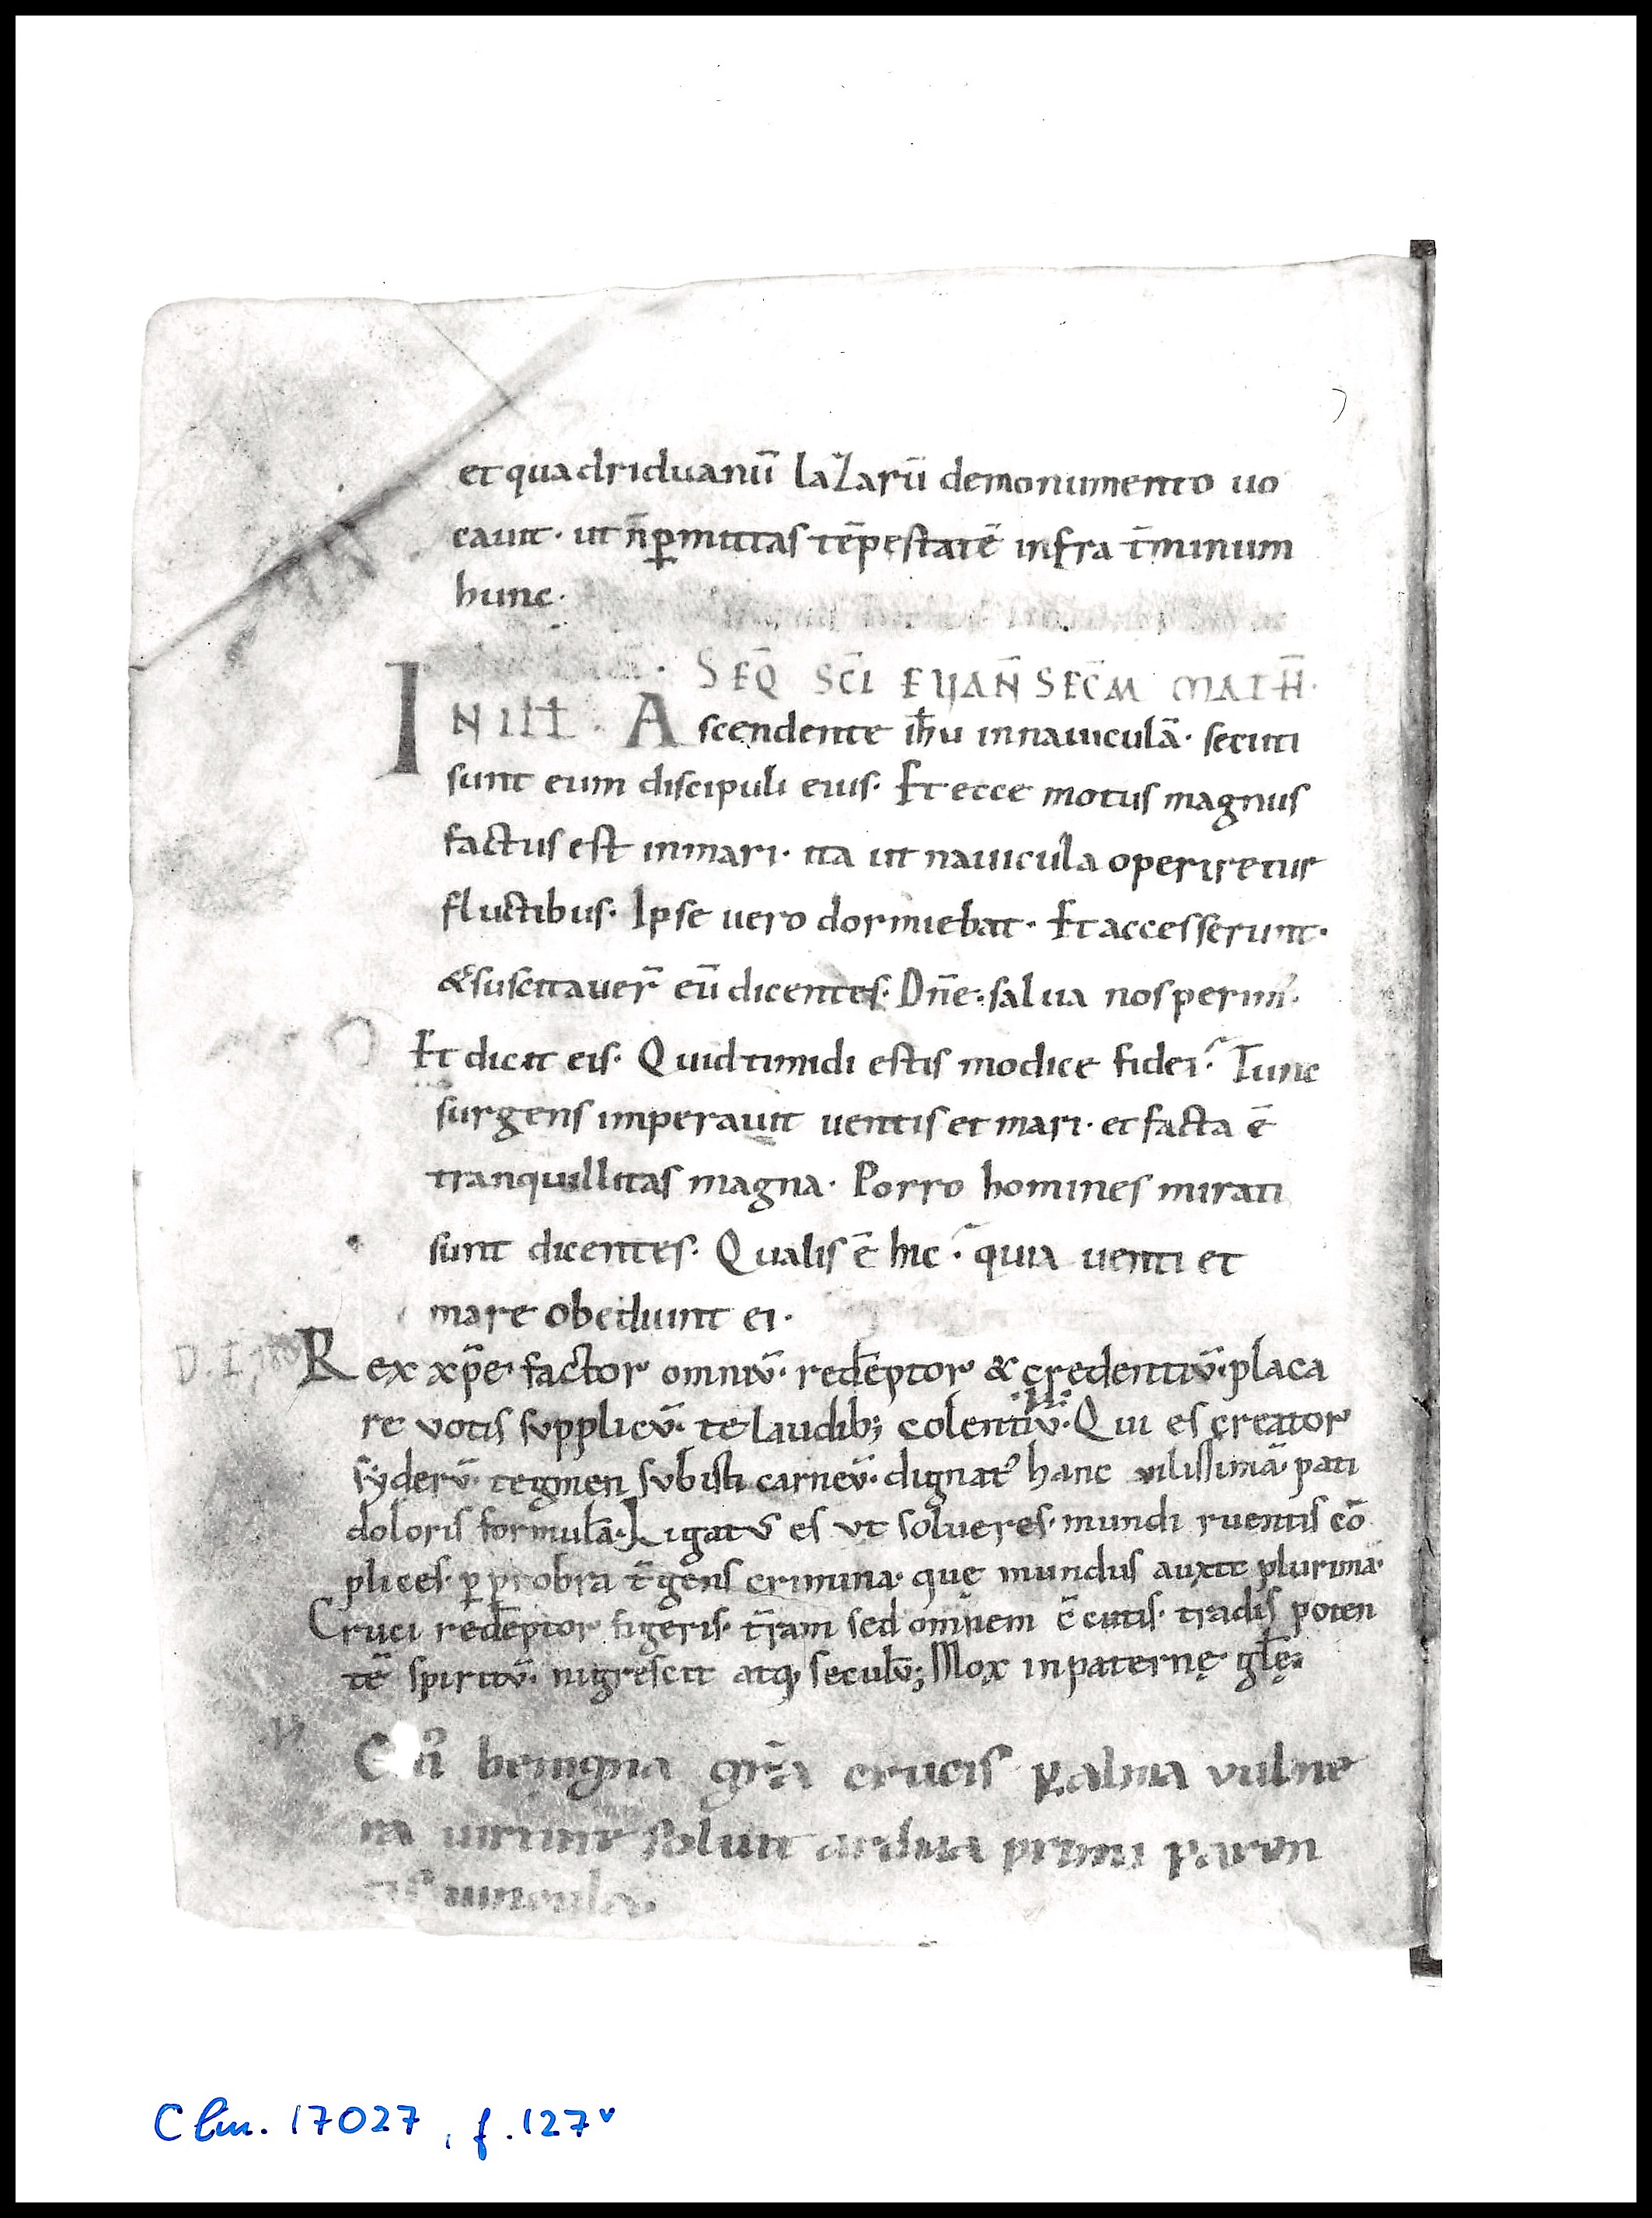 et quadriduanū laZarū demonumento uo
cauit · ut n̄ ꝑmittas tēpestatē infra t̄minum
hunc ·
SEQ̄ SC̄I EUAN̄ SEC̄M MATH̄ ·
IN ILL̄ · Ascendente ih̄u innauiculā · secuti
sunt eum discipuli eius · Et ecce motus magnus
factus est inmari · ita ut nauicula operiretur
fluctibus · Ipse uero dormiebat · Et accesserunt ·
& suscitauer̄ eū dicentes · Dn̄e · salua nos perim᷒ ·
Et dicit eis · Quid timidi estis modice fidei · Tunc
surgens imperauit uentis et mari · et facta ē
tranquillitas magna · Porro homines mirati
sunt dicentes · Qualis ē hic · quia uenti et
mare obediunt ei ·
Rex xp̄e · factor omniv̄ · redēptor & credentiv̄ · placa
re votis svpplicv̄ · te laudib; colentiv̄ · Qui es creator
syderv̄ · tegmen svbisti carnev̄ · dignat᷒ hanc vilissimā · pati
doloris formulā · Ligatus es vt solueres · mundi ruentis cō
plices · ꝑ probra t̄gens crimina · quę mundus auxit plurima ·
Cruci redēptor figeris · t̄ram sed omnem c̄cutis · tradis poten
tē spiritv̄ · nigrescit atq; seculv̄; Mox in paternę gl̄ę ·
benigna gr̄a crucis palma vulne
ra uirtute soluit ardua primi paren
tis uincula ·
Clm. 17027, f. 127v